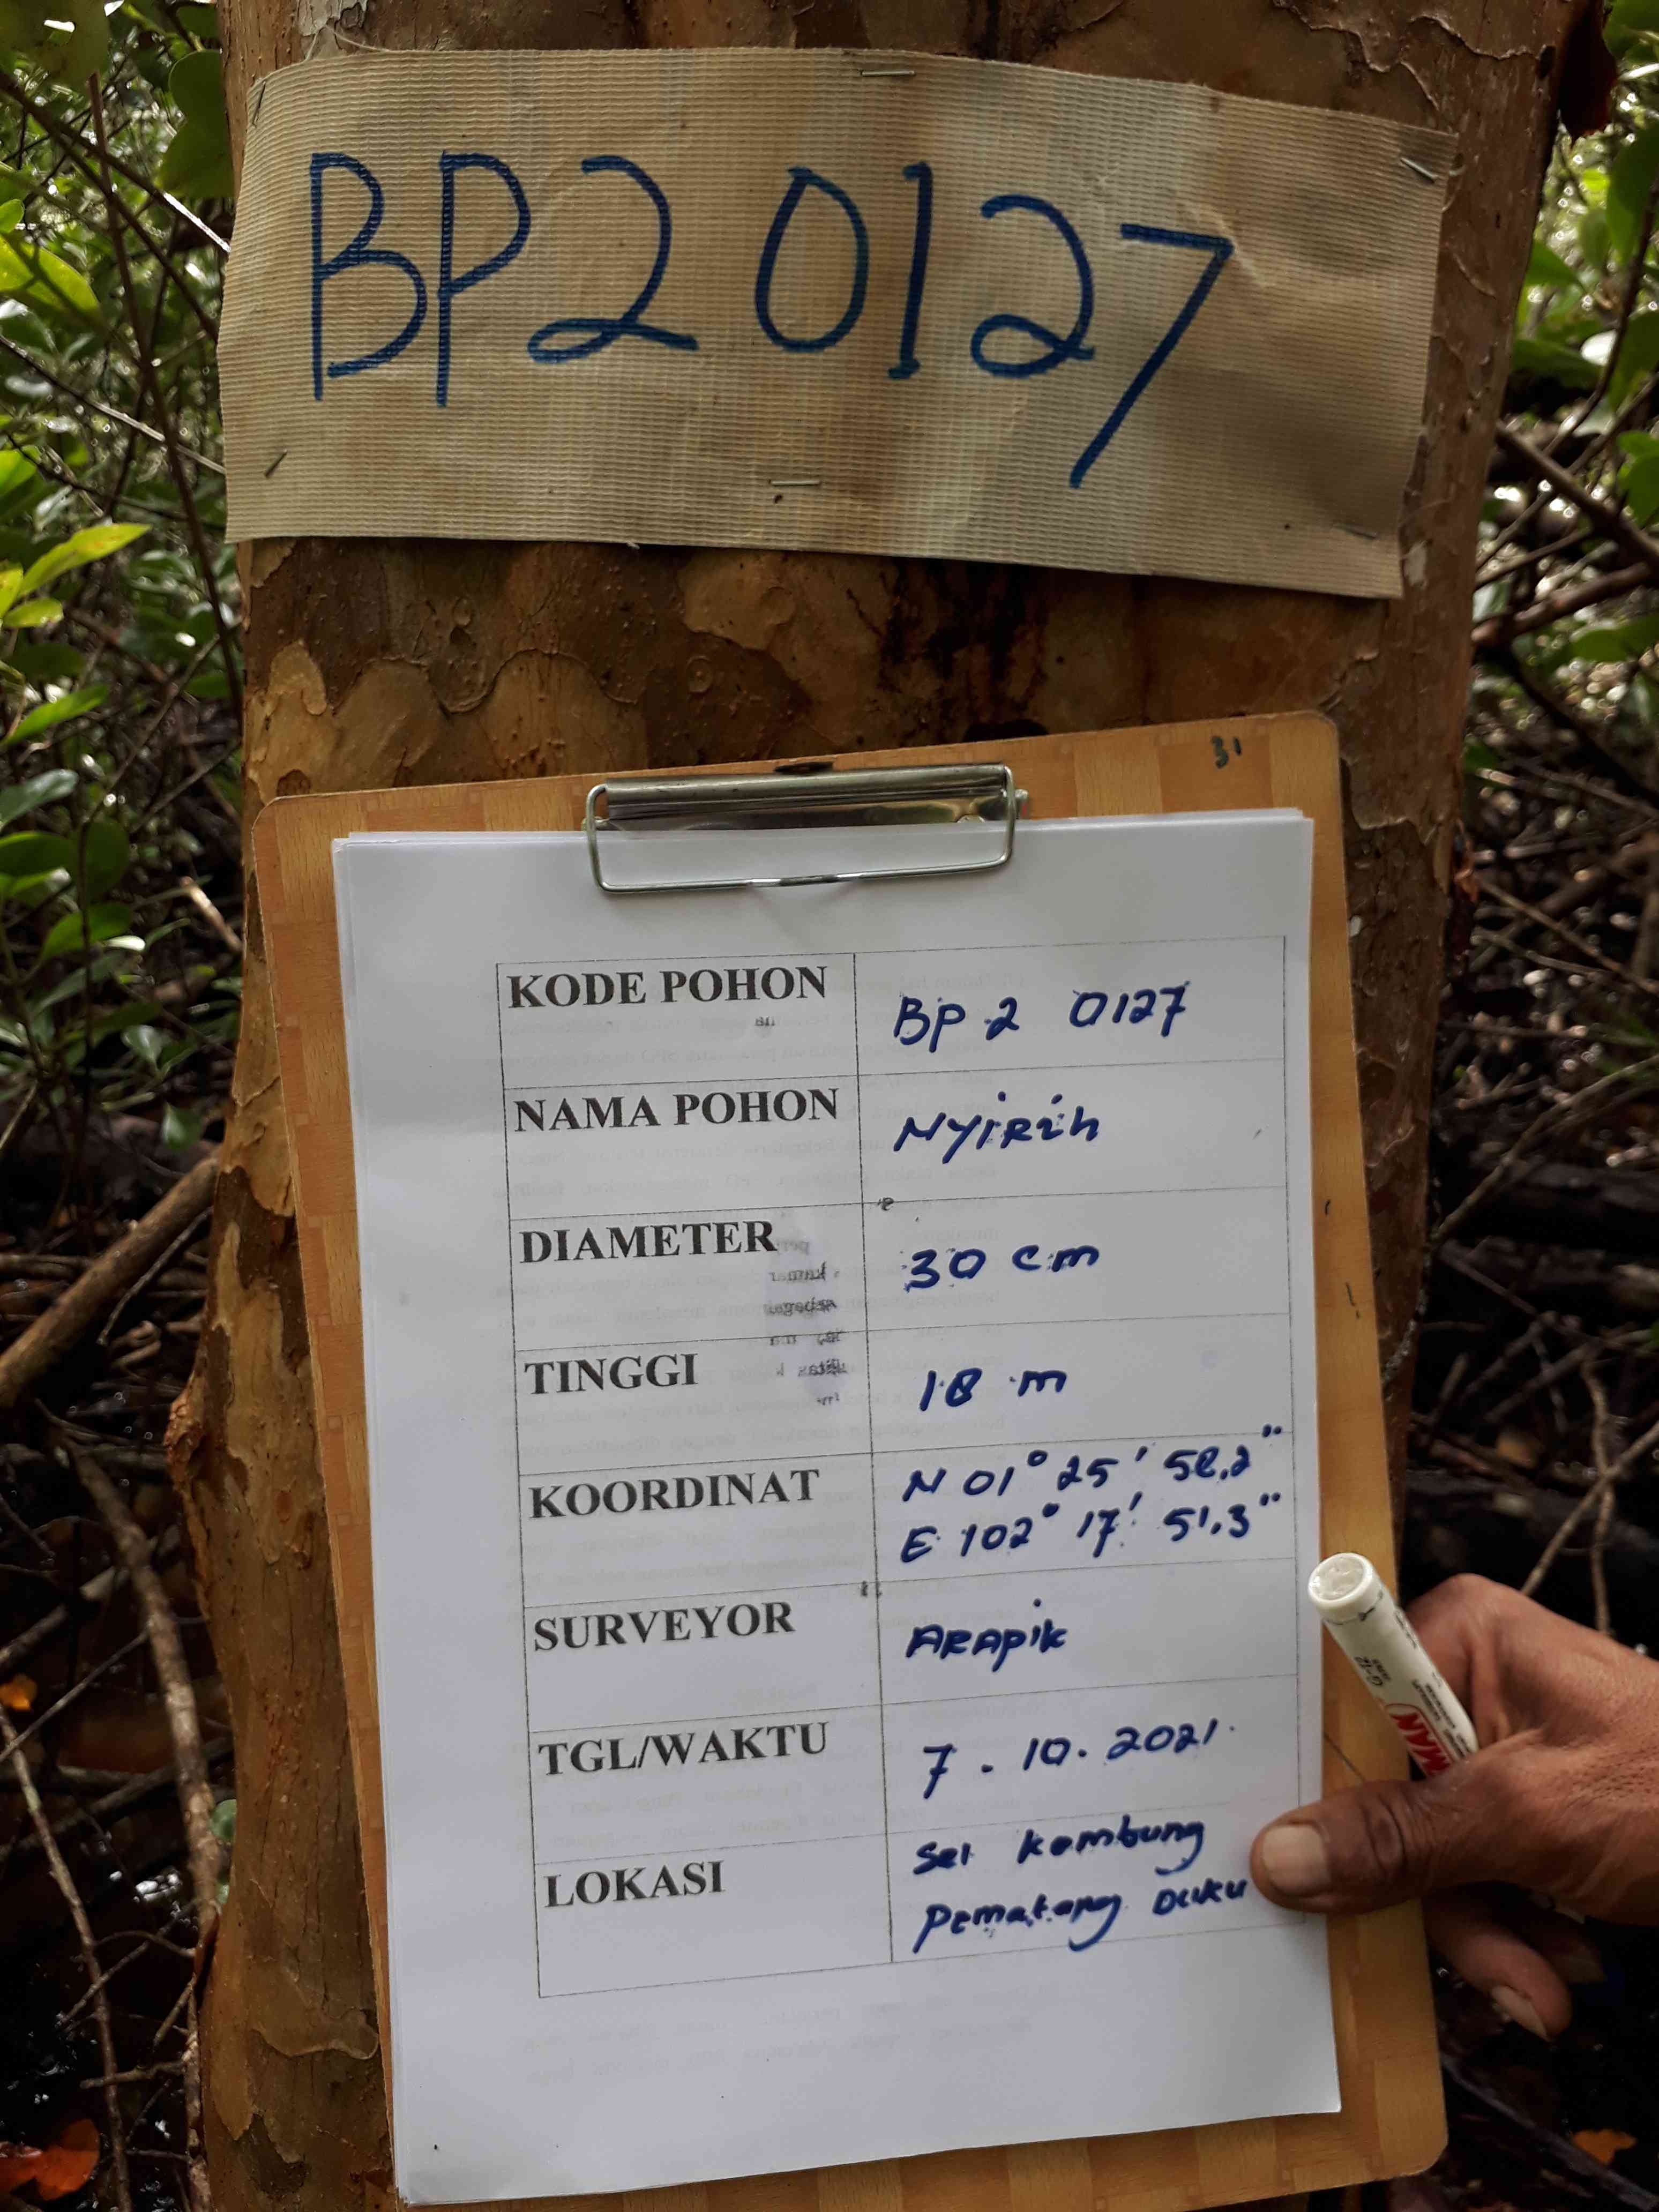 BP2 0127
31
KODE POHON
BP 2 0127
NAMA POHON
Nyirih
DIAMETER
30 cm
TINGGI
18 m
KOORDINAT
N 01° 25' 58,2"
E 102° 17' 51,3"
SURVEYOR
ARAPik
TGL/WAKTU
7 . 10 . 2021.
LOKASI
Sei Kembung
Pematang Duku
MAN
G-12